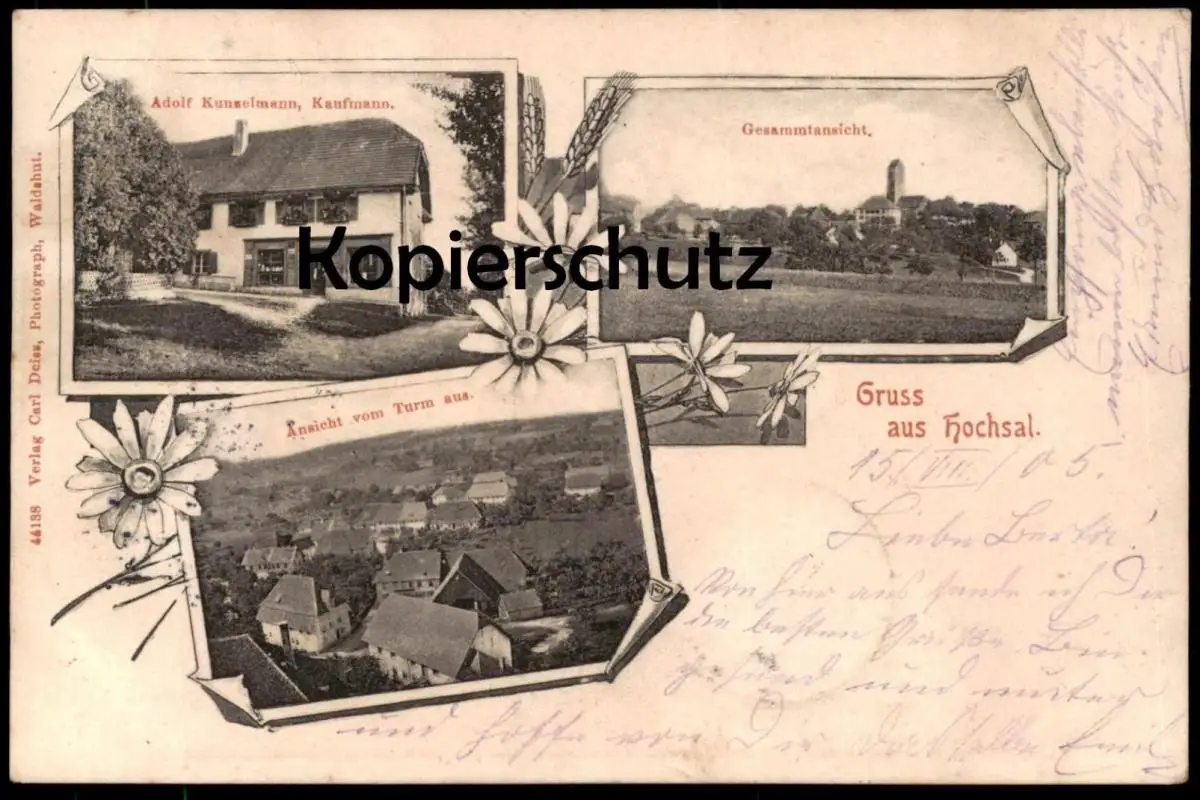 Adolf Kunzelmann, Kaufmann.
Gesammtansicht.
Kopierschutz
Ansicht vom Turm aus.
Gruss
aus Hochsal.
44138 Verlag Carl Deiss, Photograph, Waldshut.
15./VIII./05.
Liebe
Von hier aus sende ich Dir
die besten Grüße. Bin
gesund und munter
und hoffe von Dir dasselbe Emil